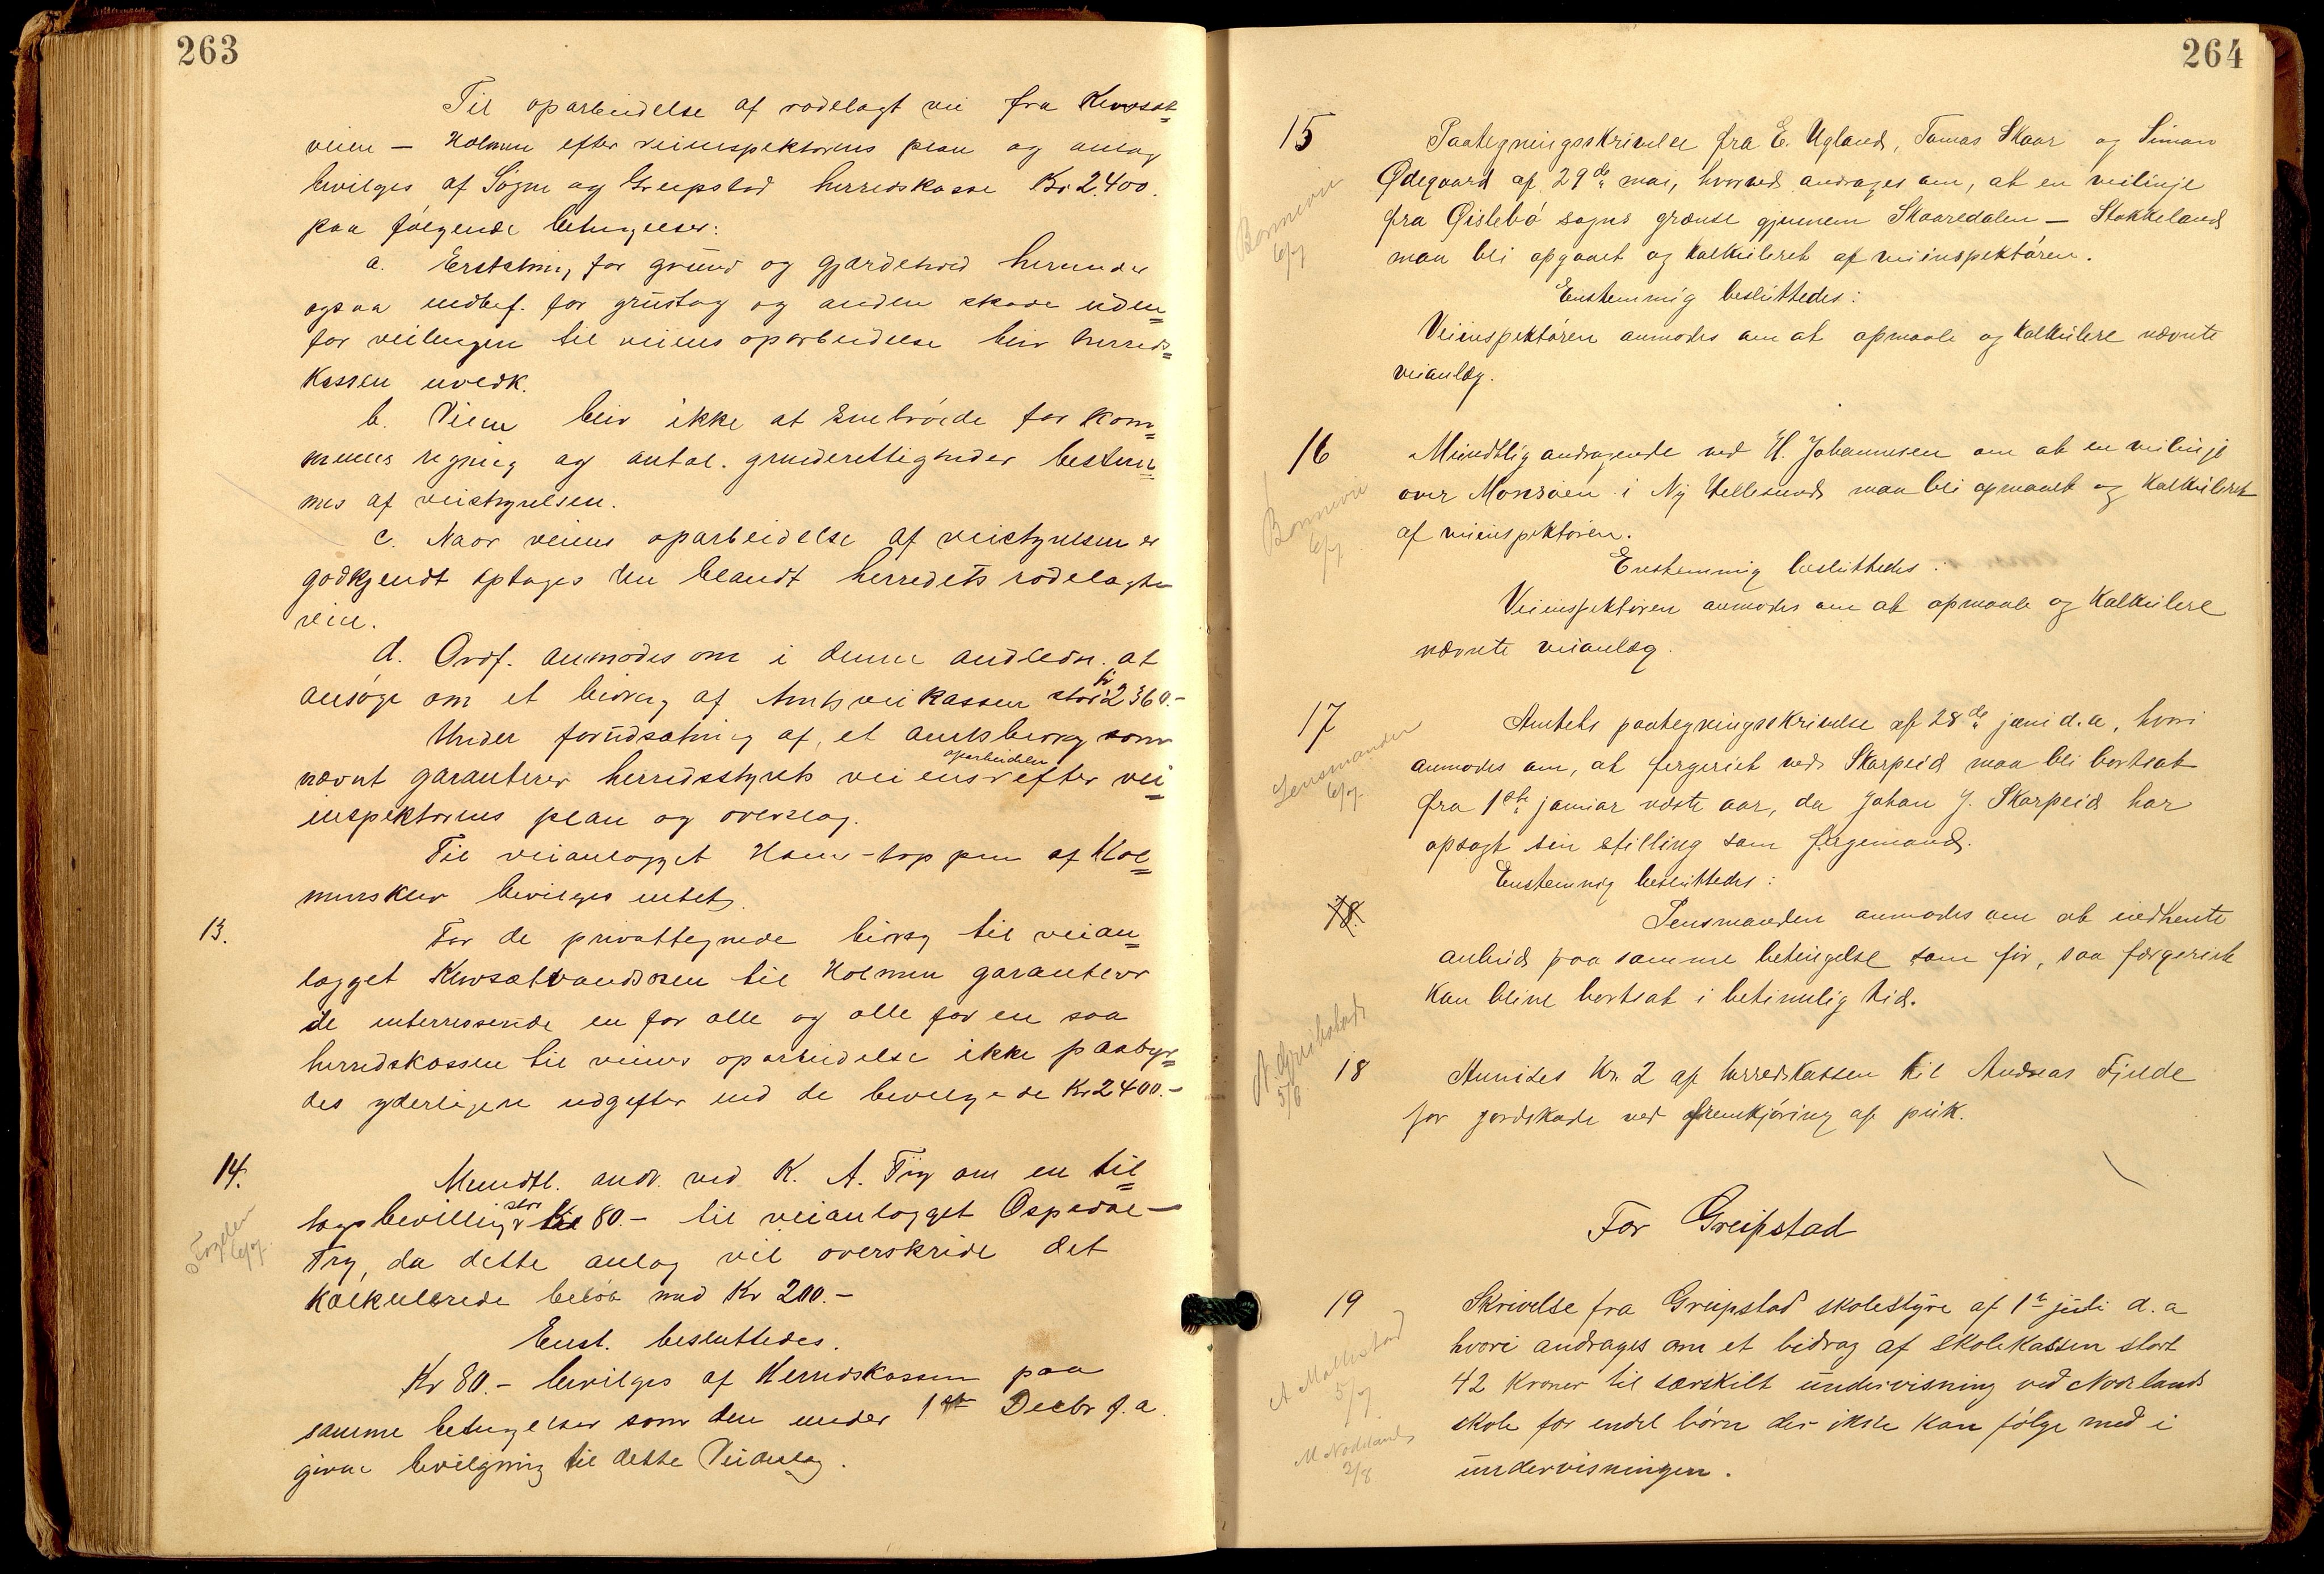 263
Til oparbeidelse af rodelagt vei fra Kvorsat=
veien — Holmen efter veiinspektørens plan og anlæg
bevilges af Søgne og Greipstad herredskasse Kr 2400.
paa følgende betingelser:
a. Erstatning for grund og gjærdehold herunder
ogsaa indbef. for grustag og anden skade uden=
for veilængen til veiens oparbeidelse blir herreds=
kassen uvedk.
b. Veien blir ikke at indbrøide for kom=
munens regning og antal. grinderettigheder bestem=
mes af veistyrelsen.
c. Naar veiens oparbeidelse af veistyrelsen er
godkjendt optages den blandt herredets rodelagte
veie.
d. Ordf. anmodes om i denne andledn. at
ansøge om et bidrag af Amtsveikassen stor kr 2360.-
Under forudsætning af, et amtsbidrag som
nævnt garanterer herredsstyret veiens oparbeidelse efter vei=
inspektørens plan og overslag.
Til veianlægget Homs-toppen af Hol=
menskleiv bevilges intet.
13. For de privattegnede bidrag til veian=
lægget Kvorsætvandosen til Holmen garanterer
de interessende en for alle og alle for en saa
herredskassen til veiens oparbeidelse ikke paabyr=
des yderligere udgifter end de bevilgede Kr 2400.-
14. Mundtl. andr. ved K. A. Try om en til=
lægsbevilling stor Kr 80.- til veianlægget Ospedal—
Fogden 6/7
Try, da dette anlæg vil overskride det
kalkulerede beløb med Kr 200.-
Enst. besluttedes.
Kr 80.- bevilges af Herredskassen paa
samme betingelser som den under 1ste Decbr f.a.
givne bevilgning til dette Veianlæg.
264
15 Paategningsskrivelse fra E. Ugland, Tomas Skaar og Simon
Ødegaard af 29de mai, hvorved andrages om, at en veilinje
Bonnevie 6/7
fra Øislebø sogns grænse gjennem Skaaredalen — Stokkeland
maa bli opgaaet og kalkuleret af veiinspektøren.
Enstemmig besluttedes:
Veiinspektøren anmodes om at opmaale og kalkulere nævnte
veianlæg.
16 Mundtlig andragende ved H. Johannesen om at en veilinje
over Monsøen i Ny Hellesund maa bli opmaalt og kalkuleret
Bonnevie 6/7
af veiinspektøren.
Enstemmig besluttedes:
Veiinspektøren anmodes om at opmaale og kalkulere
nævnte veianlæg.
17 Amtets paategningsskrivelse af 28de juni d.a, hvori
anmodes om, at færgeriet ved Skarpeid maa bli bortsat
Lensmanden 6/7.
fra 1ste januar næste aar, da Johan J. Skarpeid har
opsagt sin stilling som færgemand.
Enstemmig besluttedes:
18. Lensmanden anmodes om at indhente
anbud paa samme betingelse som før, saa færgeriet
kan blive bortsat i betimelig tid.
A. Greibstad 5/8
18 Anvistes Kr. 2 af herredskassen til Andreas Fjelde
for jordskade ved fremkjøring af puk.
For Greipstad
19 Skrivelse fra Greipstad skolestyre af 1ste juli d.a
hvori andrages om et bidrag af skolekassen stort
A Mollestad 5/7
42 kroner til særskilt undervisning ved Nodelands
skole for endel børn der ikke kan følge med i
M Nodeland 2/8
undervisningen.